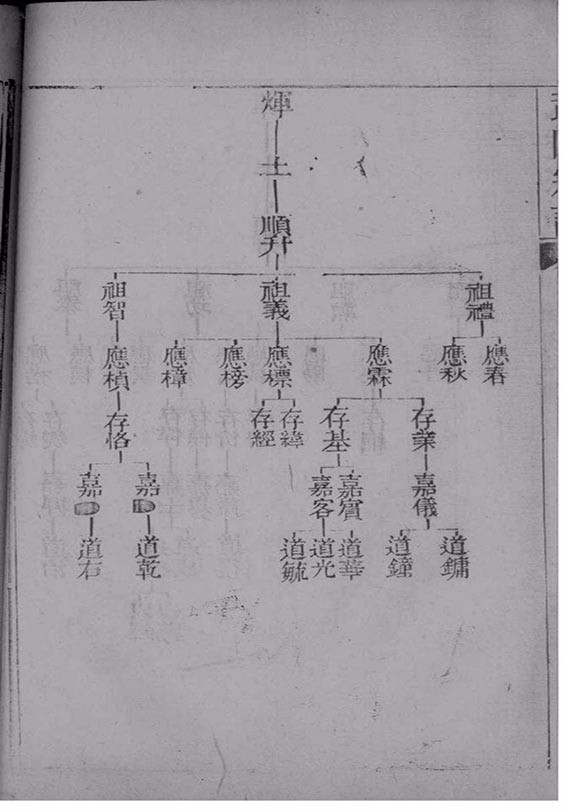 煇
土
順升
祖禮
祖義
祖智
應春
應秋
應霖
應標
應榜
應樟
應楨
存業
存基
存緯
存經
存恪
嘉儀
嘉賓
嘉客
嘉
嘉
道鏞
道鐘
道華
道光
道毓
道乾
道右